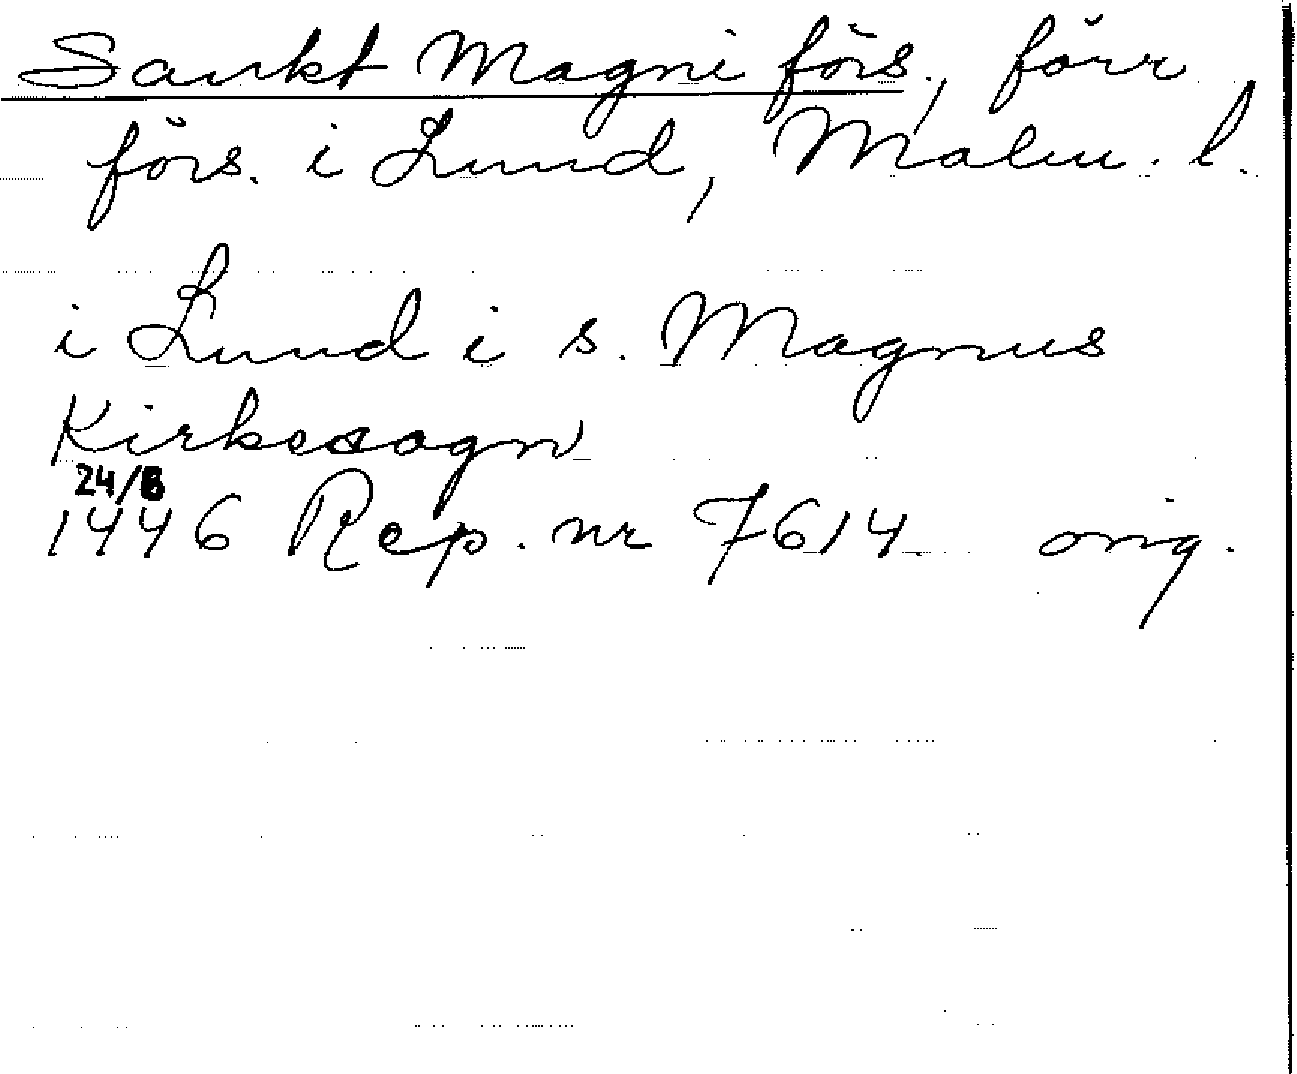 Sankt Magni förs., förr
förs. i Lund, Malm. l.
i Lund i s. Magnus
Kirkesogn
24/8
1446 Rep. nr 7614 orig.